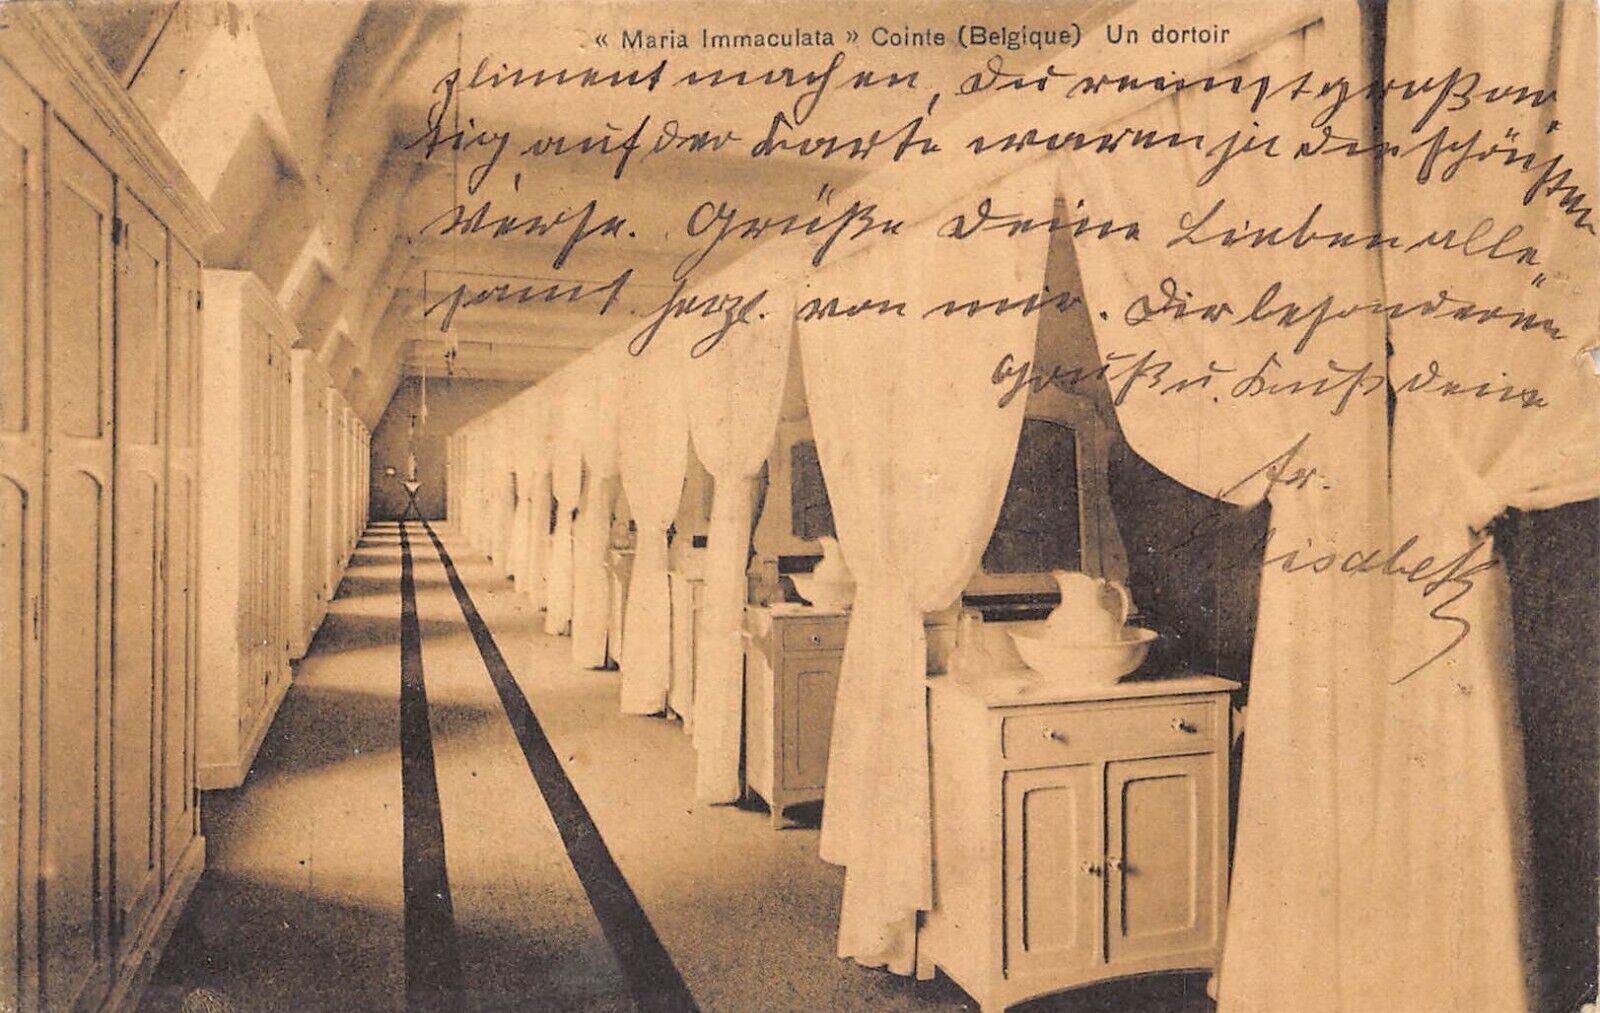 « Maria Immaculata » Cointe (Belgique) Un dortoir
pliment machen, Du reimst großar„
tig auf der Karte waren ja die schönsten
Verse. Grüße Deine Lieben alle„
samt herzl. von mir. Dir besonderen
Gruß u. Kuß Deine
Fr.
Elisabeth